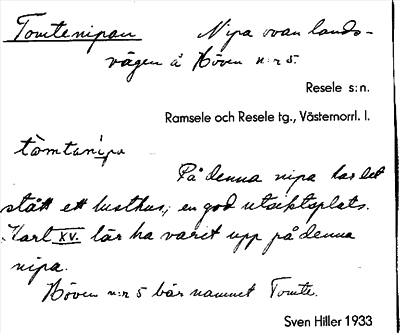 Tomtenipan Nipa ovan lands-
vägen å Höven n:r 5.
Resele s:n.
Ramsele och Resele tg., Västernorrl. l.
tomtanipa
På denna nipa har det
stått ett lusthus, en god utsiktsplats.
Karl XV. lär ha varit upp på denna
nipa.
Höven n:r 5 bär namnet Tomte.
Sven Hiller 1933